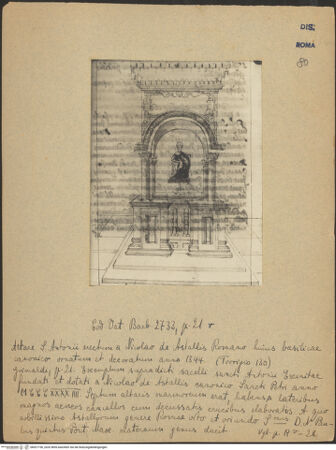 DIS.
ROMA
80
Cod. Vat. Barb. 2733, p. 21 v
Altare S. Antonii erectum a Nicolao de Astallis Romano huius basilicae
canonico ornatum et decoratum anno 1344. (Torrigio 180)
Grimaldi, p. 21. Exemplum supradicti sacelli sancti Antonii Eremitae
fundati et dotati a Nicolao de Astallis canonico Sancti Petri anno
Septum altaris marmoreum erat, habensq. lateribus
magnos aeneos cancellos cum decussatis crucibus elaboratos. A quo
nobilissimo Astalliorum genere Romae
genus ducit